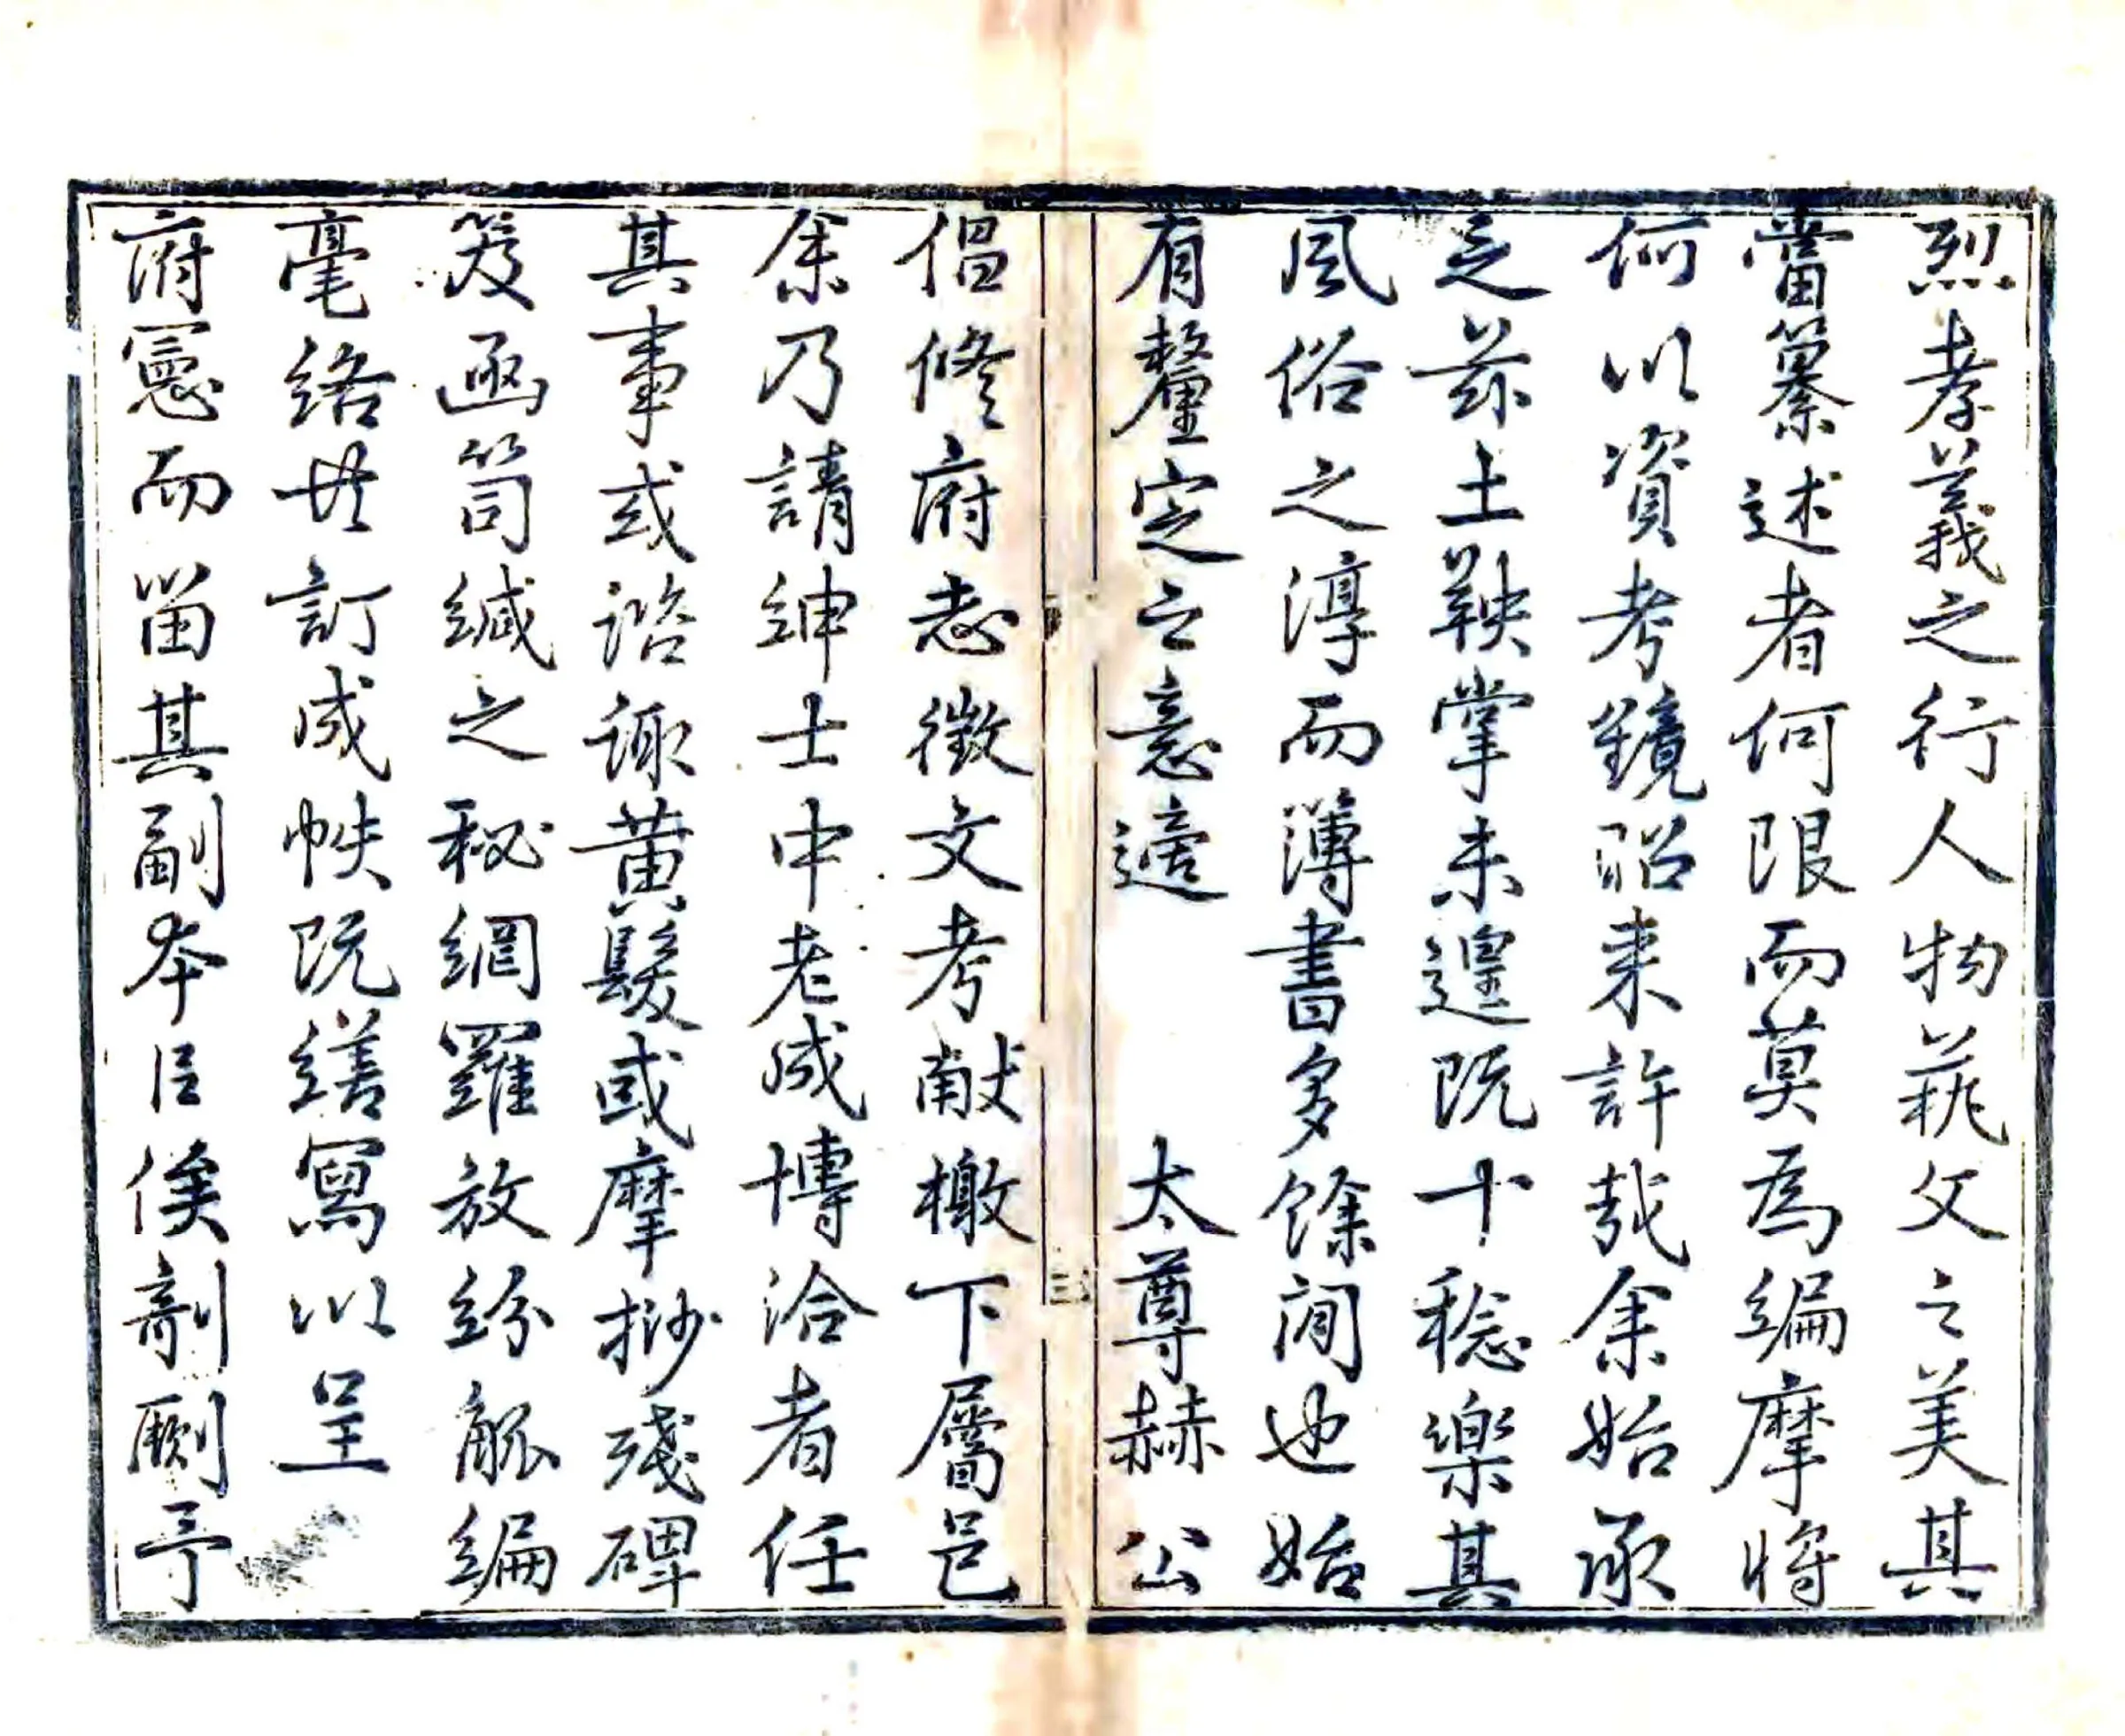 烈孝義之行人物蓺文之美其
當纂述者何限而莫為編摩將
何以資考鏡昭来許哉余始承
乏茲土鞅掌未遑既十稔樂其
風俗之淳而簿書多餘閒也始
有釐定之意適　太尊赫公
三
倡修府志徵文考献檄下屬邑
余乃請紳士中老成博洽者任
其事或諮諏黄髮或摩挱殘碑
笈函笥緘之秘網羅放紛觚編
毫絡共訂成帙既繕寫以呈
府憲而留其副本㠯俟剞劂予